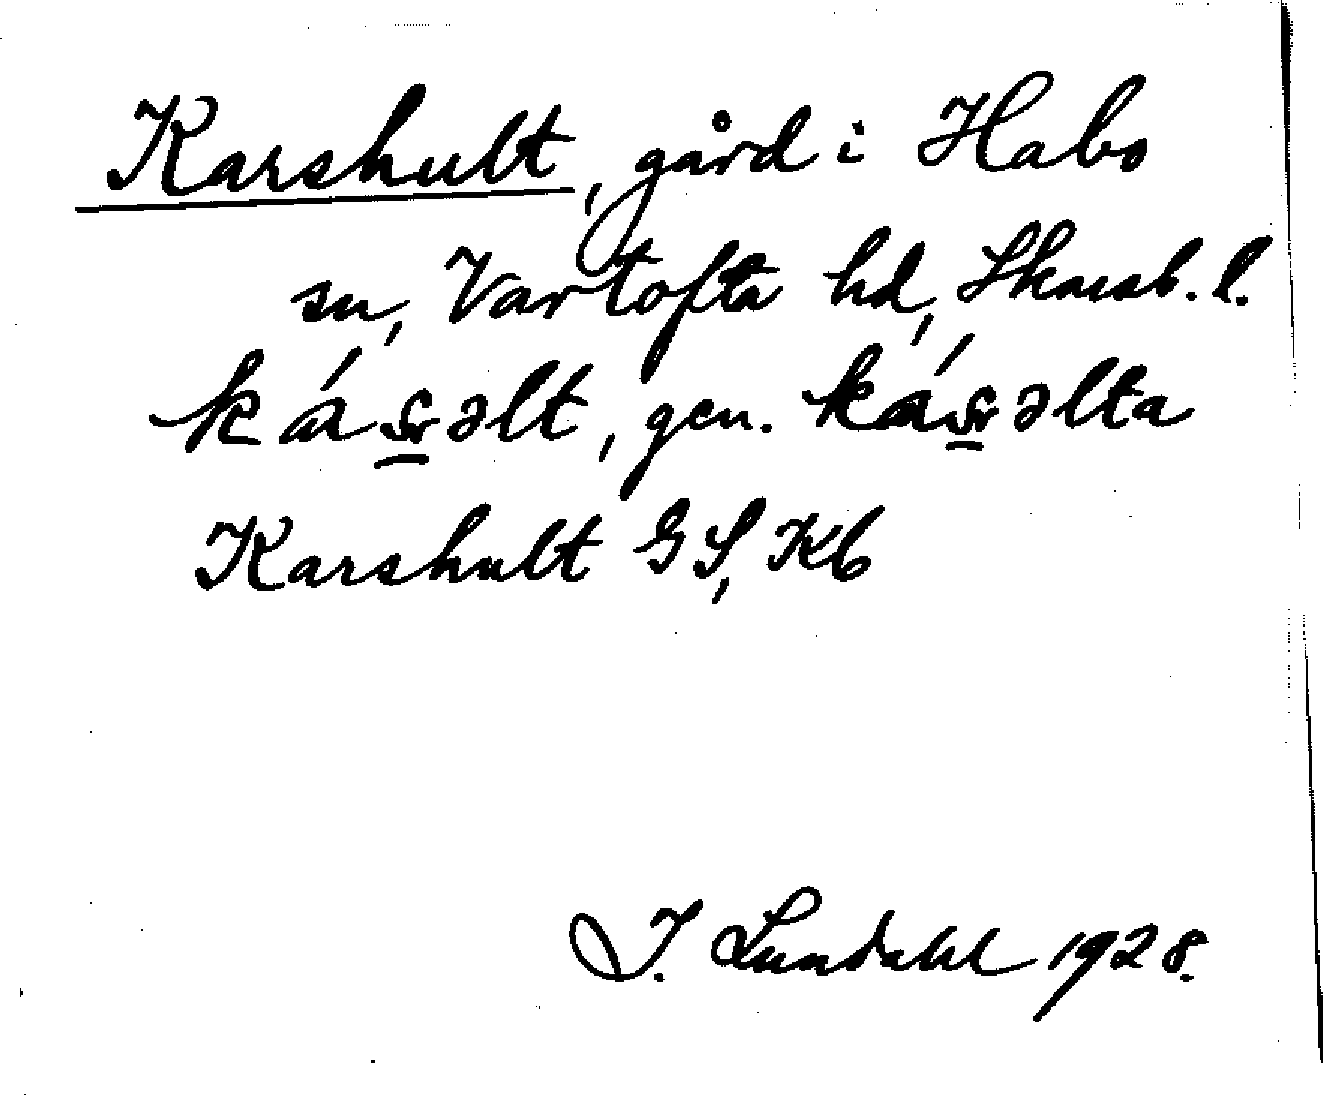 Karshult, gård i Habo
sn, Vartofta hd, Skarab. l.
kás̠əlt, gen. kás̠əlta
Karshult GS, Kb
I. Lundahl 1928.